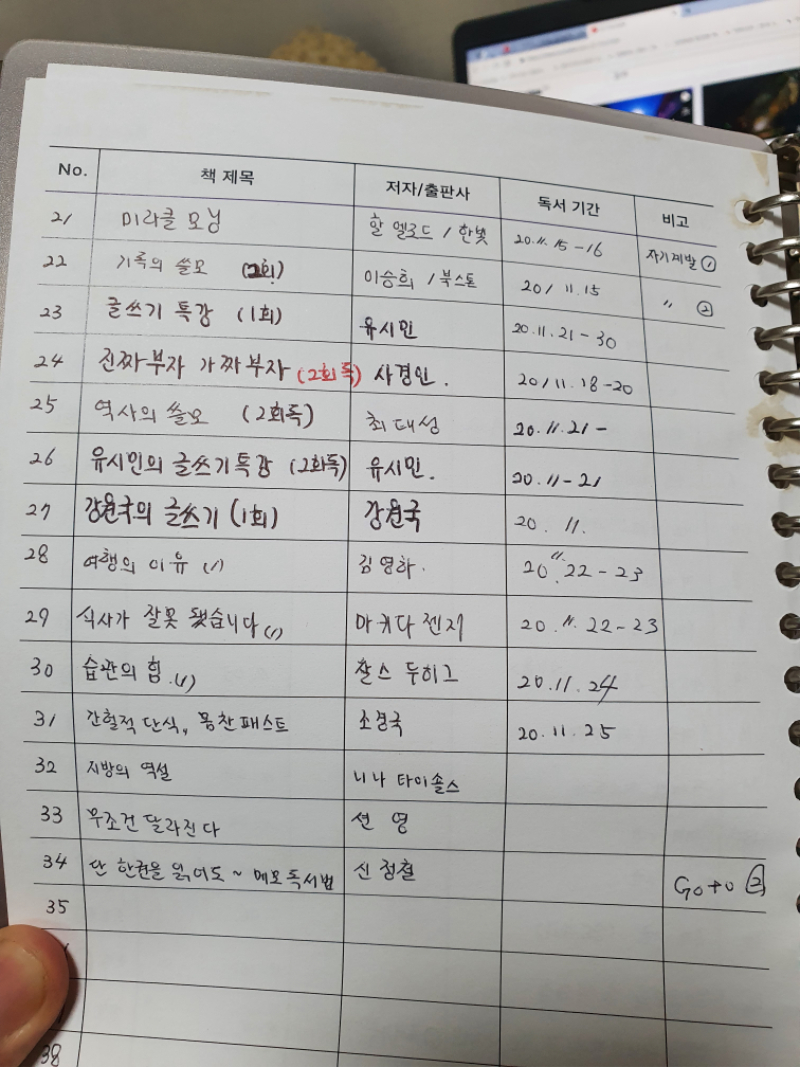 No. 책 제목 저자/출판사 독서 기간 비고
21 미라클 모닝 할 엘로드 / 한빛 20.11.15-16 자기계발 ①
22 기록의 쓸모 (2회) 이승희 / 북스톤 20/11.15 〃 ②
23 글쓰기 특강 (1회) 유시민 20.11.21-30
24 진짜부자 가짜부자 (2회독) 사경인. 20/11.18-20
25 역사의 쓸모 (2회독) 최태성 20.11.21-
26 유시민의 글쓰기 특강 (2회독) 유시민. 20.11-21
27 강원국의 글쓰기 (1회) 강원국 20. 11.
28 여행의 이유 (1) 김영하. 20.11.22-23
29 식사가 잘못 됐습니다 (1) 마키다 젠지 20.11.22-23
30 습관의 힘.(1) 찰스 두히그 20.11.24
31 간헐적 단식, 몸찬패스트 조경국 20.11.25
32 지방의 역설 니나 타이숄스
33 무조건 달라진다 션 영
34 단 한권을 읽어도~ 메모독서법 신정철 Go to 2
35
38